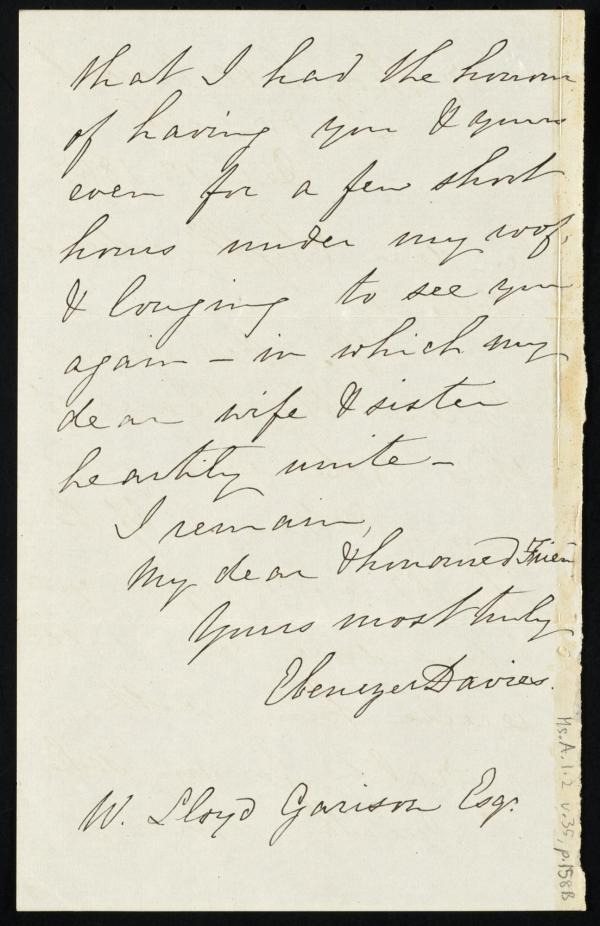 that I had the honour
of having you & yours
even for a few short
hours under my roof,
& longing to see you
again – in which my
dear wife & sister
heartily unite –
I remain,
My dear & honoured Frien
Yours most truly
Ebenezer Davies.
W. Lloyd Garison Esq.
Ms.A.1.2 v.35, p.158B